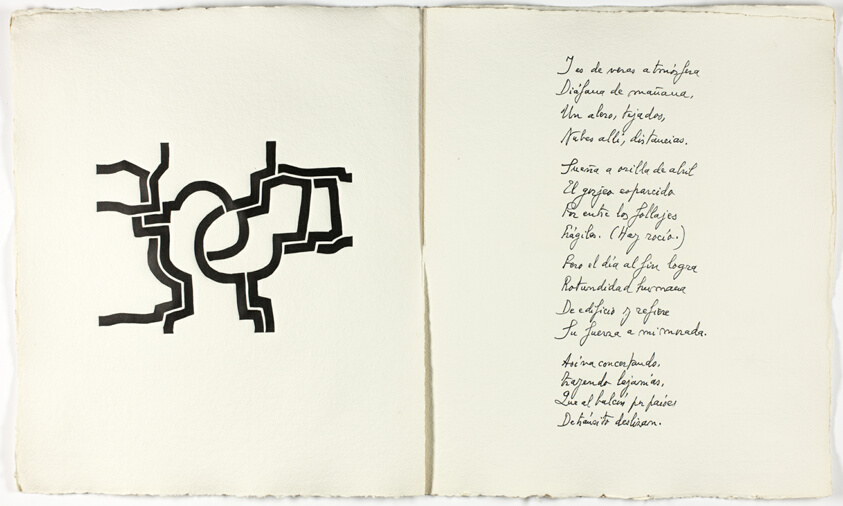 Y es de veras atmósfera
Diáfana de mañana,
Un alero, tejados,
Nubes allí, distancias.
Suena a orilla de abril
El gorjeo esparcido
Por entre los follajes
Frágiles. (Hay rocío.)
Pero el día al fin logra
Rotundidad humana
De edificio y refiere
Su fuerza a mi morada.
Así va concertando,
trayendo lejanías,
Que al balcón por países
De tránsito deslizan.